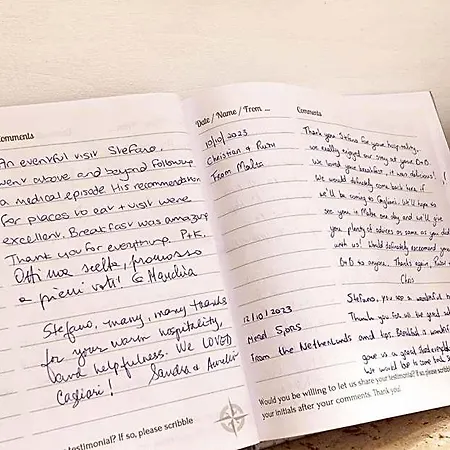 Comments
An eventful visit Stefano,
went above and beyond following
a medical episode His recommendation
for places to eat + visit were
excellent. Breakfast was amazing
Thank you for everything. P+K.
promosso
a pieni voti!
Stefano, many, many thanks
for your warm hospitality,
and helpfulness. We LOVED
Cagliari! Sandra &
testimonial? If so, please scribble
Date / Name / From ...
10/10/2023
Christian & Ruth
From Malta
12/10/2023
Merel
From the Netherlands
Comments
Thank you Stefano for your hospitality.
We really enjoyed our stay at your B&B.
We loved your breakfast, it was delicious!
We would definitely come back here if
we'll be coming to Cagliari. We'll hope to
see you in Malta one day and we'll give
you plenty of advices as same as you did
with us! Would definitely recommend your
B&B to anyone. Thanks again,
Chris
Stefano, you were a wonderful
Thank you for all the good
and tips. Breakfast is wonderful
gave us a good
We would love to come back
Would you be willing to let us share your testimonial? If so, please scribble
your initials after your comments. Thank you!